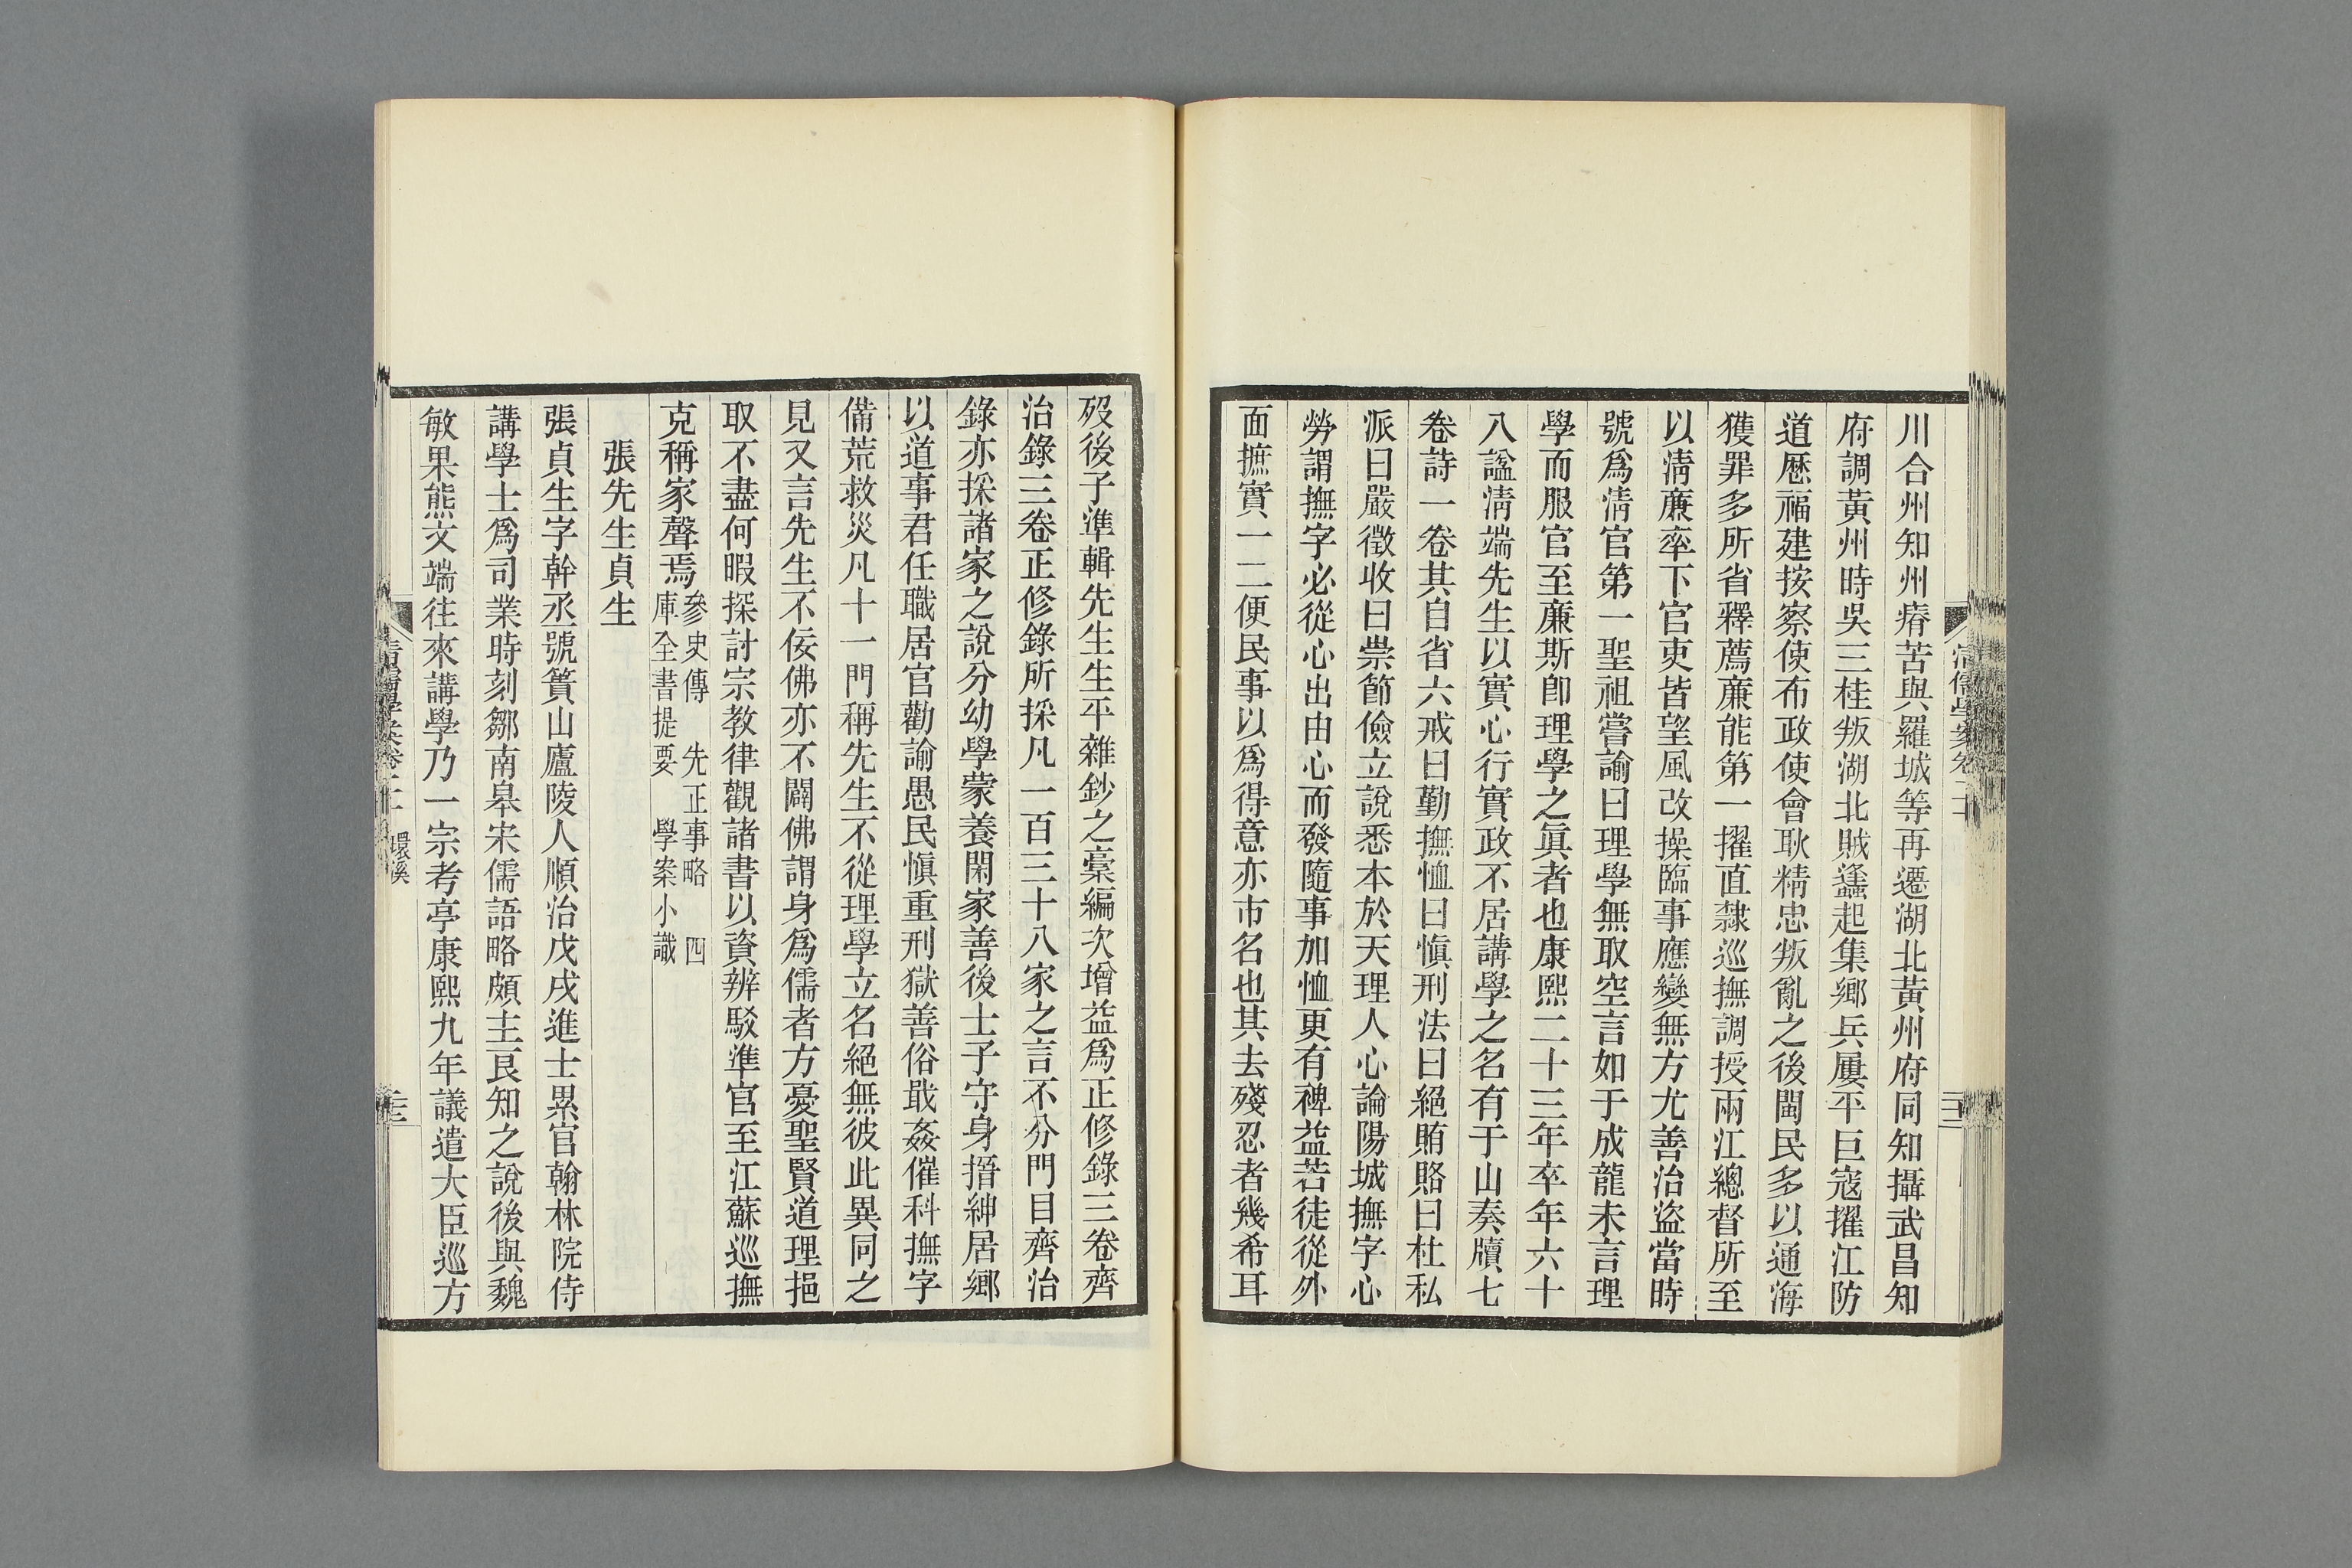 川合州知州瘠苦與羅城等再遷湖北黃州府同知攝武昌知
府調黃州時吳三桂叛湖北賊蠭起集鄉兵屢平巨寇擢江防
道歷福建按察使布政使會耿精忠叛亂之後閩民多以通海
獲罪多所省釋薦廉能第一擢直隸巡撫調授兩江總督所至
以清廉率下官吏皆望風改操臨事應變無方尤善治盜當時
號爲清官第一聖祖嘗諭曰理學無取空言如于成龍未言理
學而服官至廉斯卽理學之眞者也康熙二十三年卒年六十
八諡清端先生以實心行實政不居講學之名有于山奏牘七
卷詩一卷其自省六戒曰勤撫恤曰愼刑法曰絕賄賂曰杜私
派曰嚴徵收曰崇節儉立說悉本於天理人心論陽城撫字心
勞謂撫字必從心出由心而發隨事加恤更有裨益若徒從外
面摭實一二便民事以爲得意亦市名也其去殘忍者幾希耳
歿後子準輯先生生平雜鈔之稾編次增益爲正修錄三卷齊
治錄三卷正修錄所採凡一百三十八家之言不分門目齊治
錄亦採諸家之說分幼學蒙養閑家善後士子守身搢紳居鄉
以道事君任職居官勸諭愚民愼重刑獄善俗戢姦催科撫字
備荒救災凡十一門稱先生不從理學立名絕無彼此異同之
見又言先生不佞佛亦不闢佛謂身爲儒者方憂聖賢道理挹
取不盡何暇探討宗教律觀諸書以資辨駁準官至江蘇巡撫
克稱家聲焉參史傳 先正事略 四
庫全書提要 學案小識
張先生貞生
張貞生字幹丞號簣山廬陵人順治戊戌進士累官翰林院侍
講學士爲司業時刻鄒南皋宋儒語略頗主良知之說後與魏
敏果熊文端往來講學乃一宗考亭康熙九年議遣大臣巡方
環溪